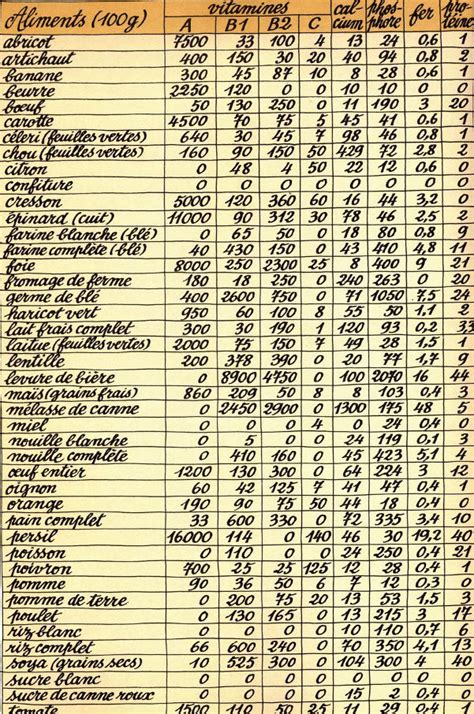 Aliments (100g) vitamines calcium phosphore fer protéine
A B1 B2 C
abricot 7500 33 100 4 13 24 0,6 1
artichaut 400 150 30 20 40 94 0,8 2
banane 300 45 87 10 8 28 0,6 1
beurre 2250 120 0 0 10 10 0 0
bœuf 50 130 250 0 11 190 3 20
carotte 4500 70 75 5 45 41 0,6 1
céleri (feuilles vertes) 640 30 45 7 98 46 0,8 1
chou (feuilles vertes) 160 90 150 50 429 72 2,8 2
citron 0 48 4 50 22 12 0,6 0
confiture 0 0 0 0 0 0 0 0
cresson 5000 120 360 60 16 44 3,2 0
épinard (cuit) 11000 90 312 30 78 46 2,5 2
farine blanche (blé) 0 65 50 0 18 80 0,8 9
farine complète (blé) 40 430 150 0 43 410 4,8 11
foie 8000 250 2300 25 8 400 9 21
fromage de ferme 180 18 250 0 240 263 0 20
germe de blé 400 2600 750 0 71 1050 7,5 24
haricot vert 950 60 100 8 55 50 1,1 2
lait frais complet 300 30 190 1 120 93 0,2 33
laitue (feuilles vertes) 2000 75 150 7 49 28 1,5 1
lentille 200 378 390 0 20 77 1,7 9
levure de bière 0 8900 4750 0 100 2070 16 44
maïs (grains frais) 860 209 50 8 8 103 0,4 3
mélasse de canne 0 2450 2900 0 1300 175 48 5
miel 0 0 0 4 0 24 0,4 0
nouille blanche 0 5 0 0 24 119 0,1 3
nouille complète 0 410 160 0 45 423 5,1 4
œuf entier 1200 130 300 0 64 224 3 12
oignon 60 42 125 7 41 47 0,4 1
orange 190 90 75 50 44 18 0,4 0
pain complet 33 600 300 0 72 335 3,4 10
persil 16000 114 0 140 46 30 19,2 40
poisson 0 110 0 0 24 250 0,4 21
poivron 700 25 25 125 12 28 0,4 1
pomme 90 36 50 6 7 12 0,3 0
pomme de terre 0 200 75 20 13 53 1,5 3
poulet 0 130 165 0 13 215 3 17
riz blanc 0 0 0 0 10 110 0,7 6
riz complet 66 600 240 0 70 350 4,1 13
soya (grains secs) 10 525 300 0 104 300 4 40
sucre blanc 0 0 0 0 0 0 0 0
sucre de canne roux 0 0 0 0 15 2 0,4 0
tomate 1500 110 50 25 11 29 0,4 1